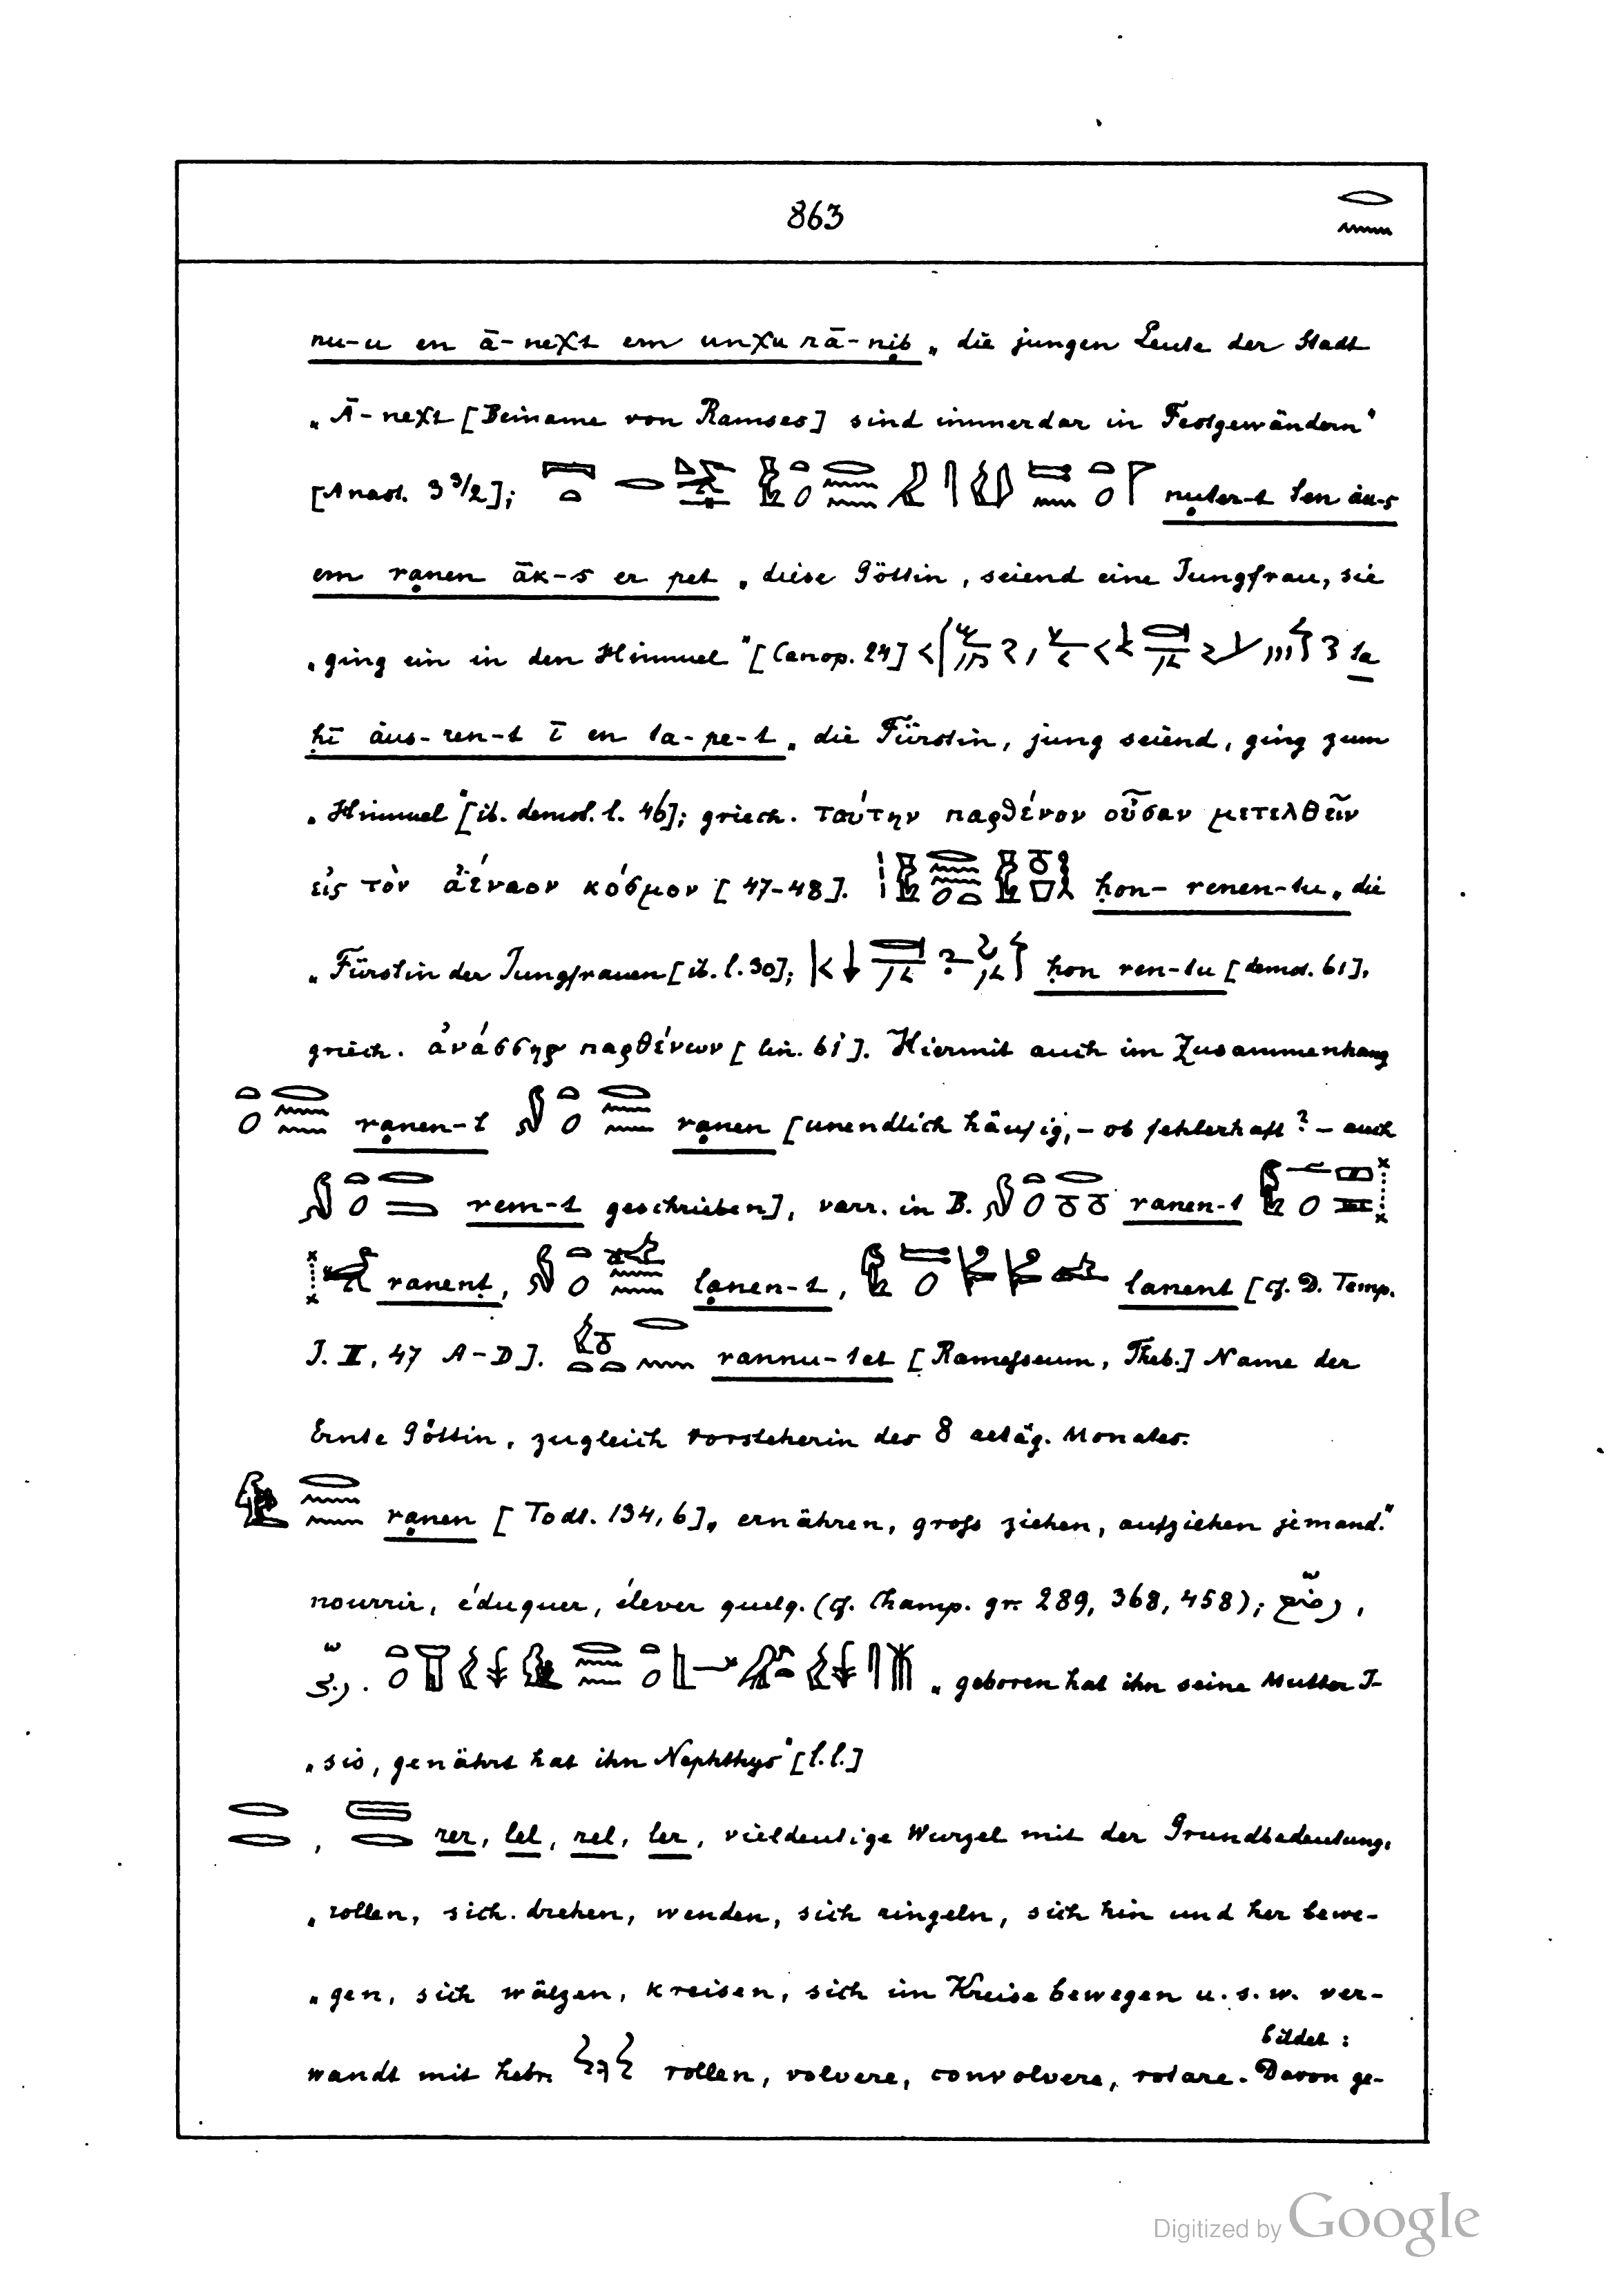 863
nu-u en ā-neχt em unχu rā-nib „die jungen Leute der Stadt
„Ā-neχt [Beiname von Ramses] sind immerdar in Festgewändern“
[Anast. 3 3/2]; nuter-t ten àu-s
em ranen āk-s er pet „diese Göttin, seiend eine Jungfrau, sie
„ging ein in den Himmel“ [Canop. 24] ta
ḥī àus-ren-t ī en ta-pe-t „die Fürstin, jung seiend, ging zum
„Himmel“ [ib. demot. l. 46]; griech. ταύτην παρθένον οὖσαν μετελθεῖν
εἰς τὸν ἀέναον κόσμον [47-48]. ḥon-renen-tu „die
„Fürstin der Jungfrauen [ib. l. 30]; ḥon ren-tu [demot. 61],
griech. ἀνάσσης παρθένων [lin. 61]. Hiermit auch im Zusammenhang
ranen-t ranen [unendlich häufig, – ob fehlerhaft? – auch
rem-t geschrieben], varr. in B. ranen-t
ranent, lanen-t, lanent [cf. D. Temp.
I. II, 47 A-D]. rannu-tet [Ramesseum, Theb.] Name der
Ernte Göttin, zugleich Vorsteherin des 8 aetäg. Monates.
ranen [Todt. 134, 6] „ernähren, gross ziehen, aufziehen jemand.“
nourrir, éduquer, élever quelq. (cf. Champ. gr. 289, 368, 458);
„geboren hat ihn seine Mutter I-
„sis, genährt hat ihn Nephthys“ [l.l.]
, rer, lel, rel, ler, vieldeutige Wurzel mit der Grundbedeutung:
„rollen, sich drehen, wenden, sich ringeln, sich hin und her bewe-
„gen, sich wälzen, kreisen, sich im Kreise bewegen u.s.w. ver-
bildet:
wandt mit hebr. rollen, volvere, convolvere, rotare. Davon ge-
Digitized by Google